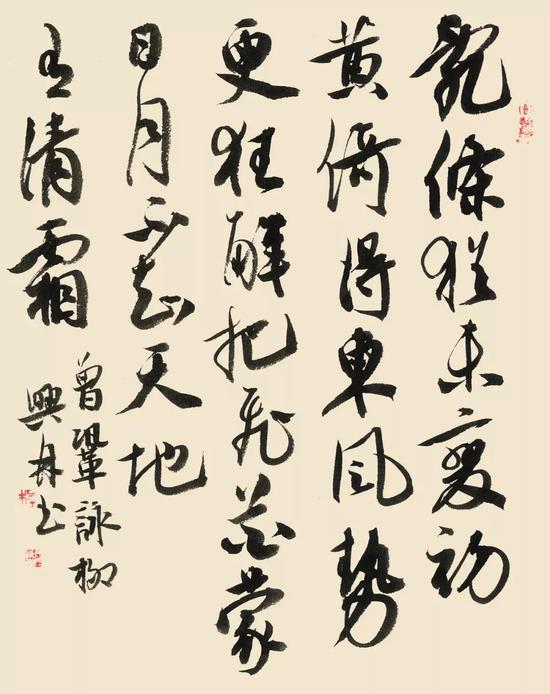 亂條猶未變初
黄倚得東風勢
更狂解把飛花蒙
日月不知天地
有清霜
曾鞏詠柳
興林書